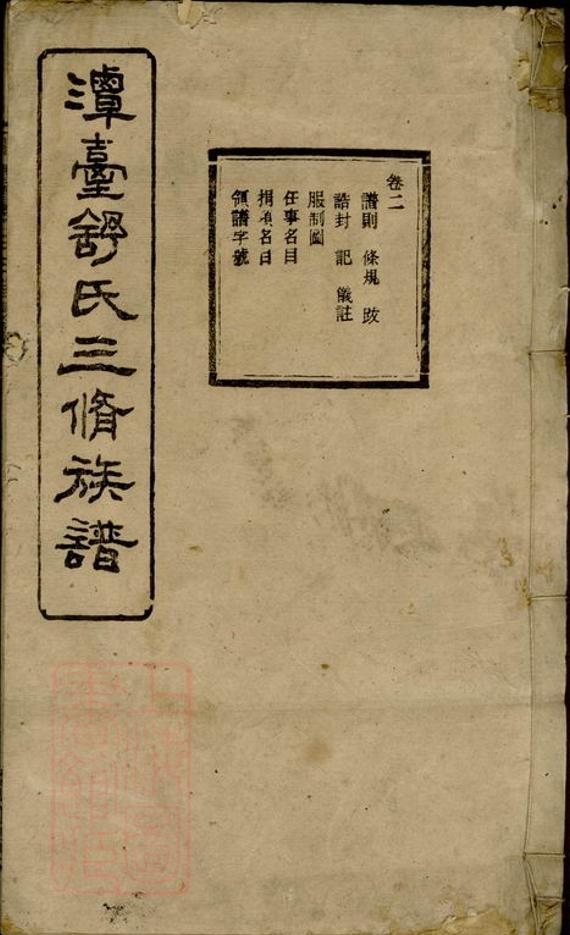 卷二
譜則 條規 跋
誥封 記 儀註
服制圖
任事名目
捐項名目
領譜字號
潭臺舒氏三脩族譜